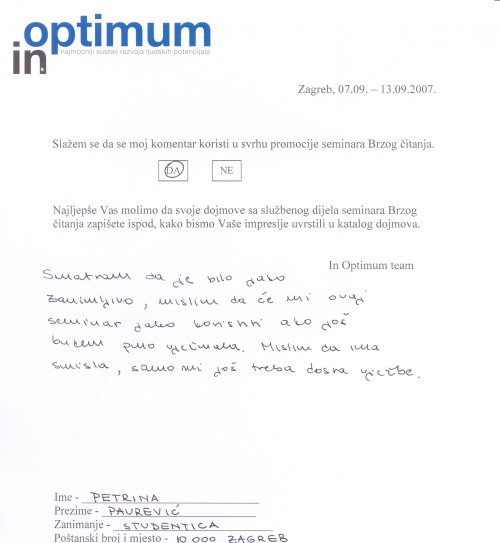 in optimum
najmoćniji sustav razvoja ljudskih potencijala
Zagreb, 07.09. – 13.09.2007.
Slažem se da se moj komentar koristi u svrhu promocije seminara Brzog čitanja.
DA NE
Najljepše Vas molimo da svoje dojmove sa službenog dijela seminara Brzog
čitanja zapišete ispod, kako bismo Vaše impresije uvrstili u katalog dojmova.
In Optimum team
Smatram da je bilo jako
zanimljivo, mislim da će mi ovaj
seminar jako koristiti ako još
budem puno vježbala. Mislim da ima
smisla, samo mi još treba dosta vježbe.
Ime - PETRINA
Prezime - PAUREVIĆ
Zanimanje - STUDENTICA
Poštanski broj i mjesto - 10 000 ZAGREB